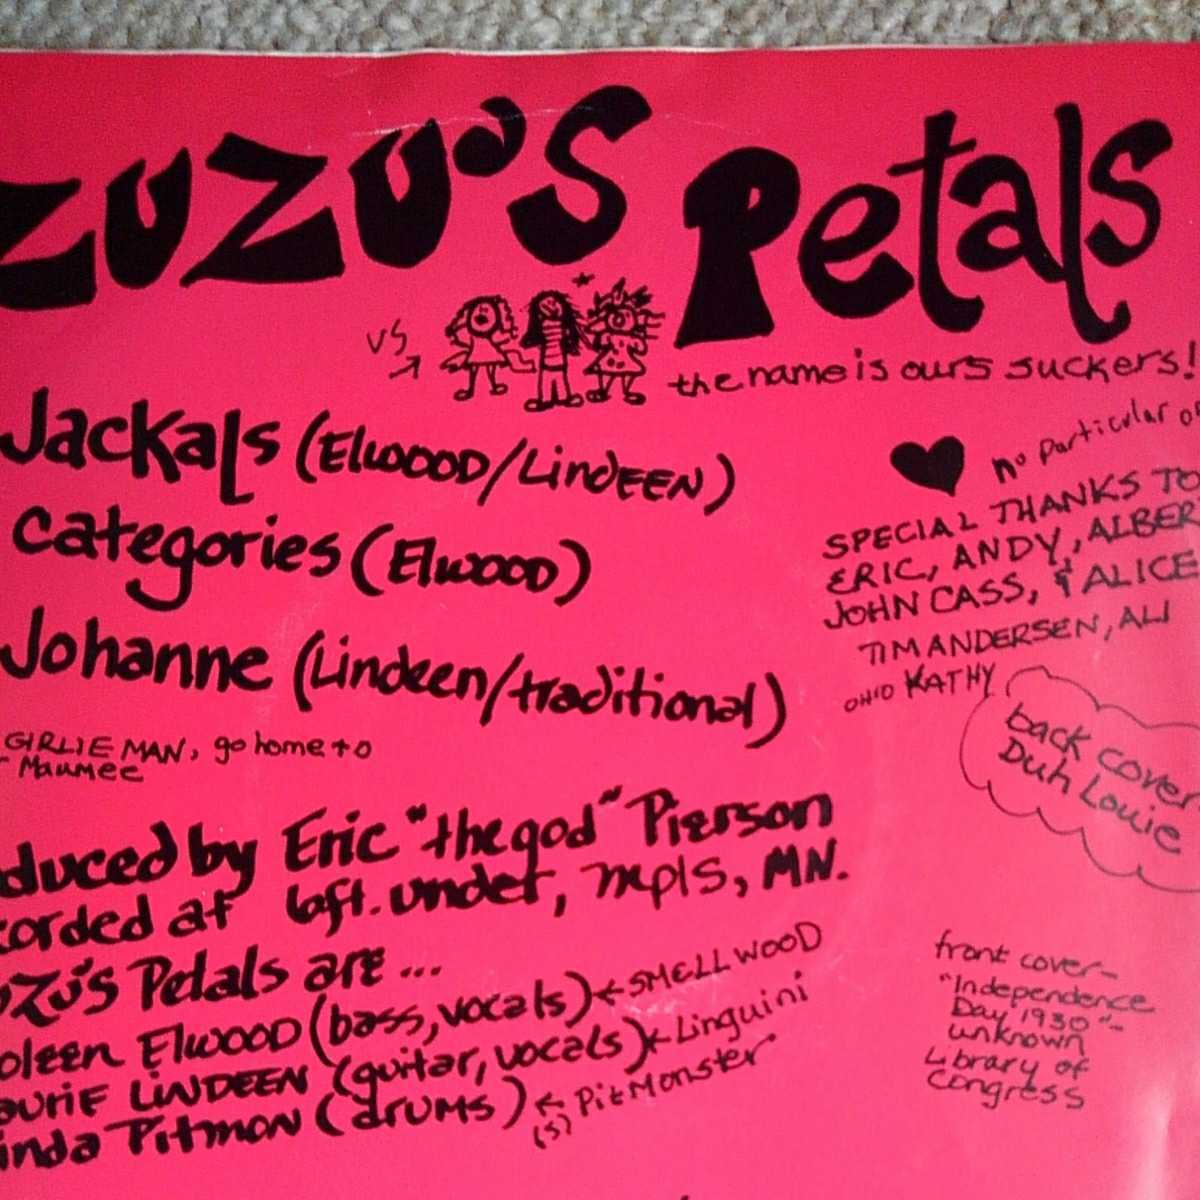 ZUZU'S Petals
US
the name is ours suckers!
Jackals (Elwood/Lindeen)
categories (Elwood)
Johanne (Lindeen/traditional)
GIRLIE MAN, go home to
Maumee
no particular or
SPECIAL THANKS TO
ERIC, ANDY, ALBER
JOHN CASS, & ALICE
TIM ANDERSEN, ALI
OHIO KATHY
back cover
Duh Louie
oduced by Eric "the god" Pierson
corded at loft. under, mpls, MN.
uzu's Petals are...
oleen Elwood (bass, vocals) ← SMELLWOOD
aurie Lindeen (guitar, vocals) ← Linguini
inda Pitmon (drums) ← (s) PitMonster
front cover-
"Independence
Day 1930"-
unknown
Library of
Congress